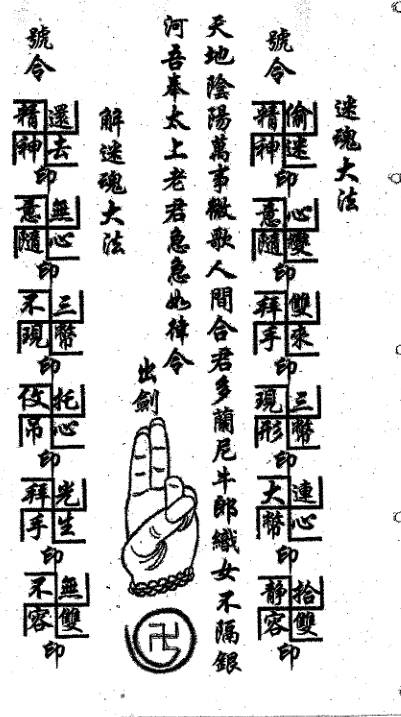 迷魂大法
號令
偷迷精神印
心變意隨印
雙來拜手印
三幣現形印
連心大幣印
拾雙靜容印
天地陰陽萬事徹歌人間合君多蘭尼牛郎織女不隔銀
河吾奉太上老君急急如律令
出劍
卍
解迷魂大法
號令
還去精神印
無心意隨印
三幣不現印
托心伩吊印
光生拜手印
無雙不容印